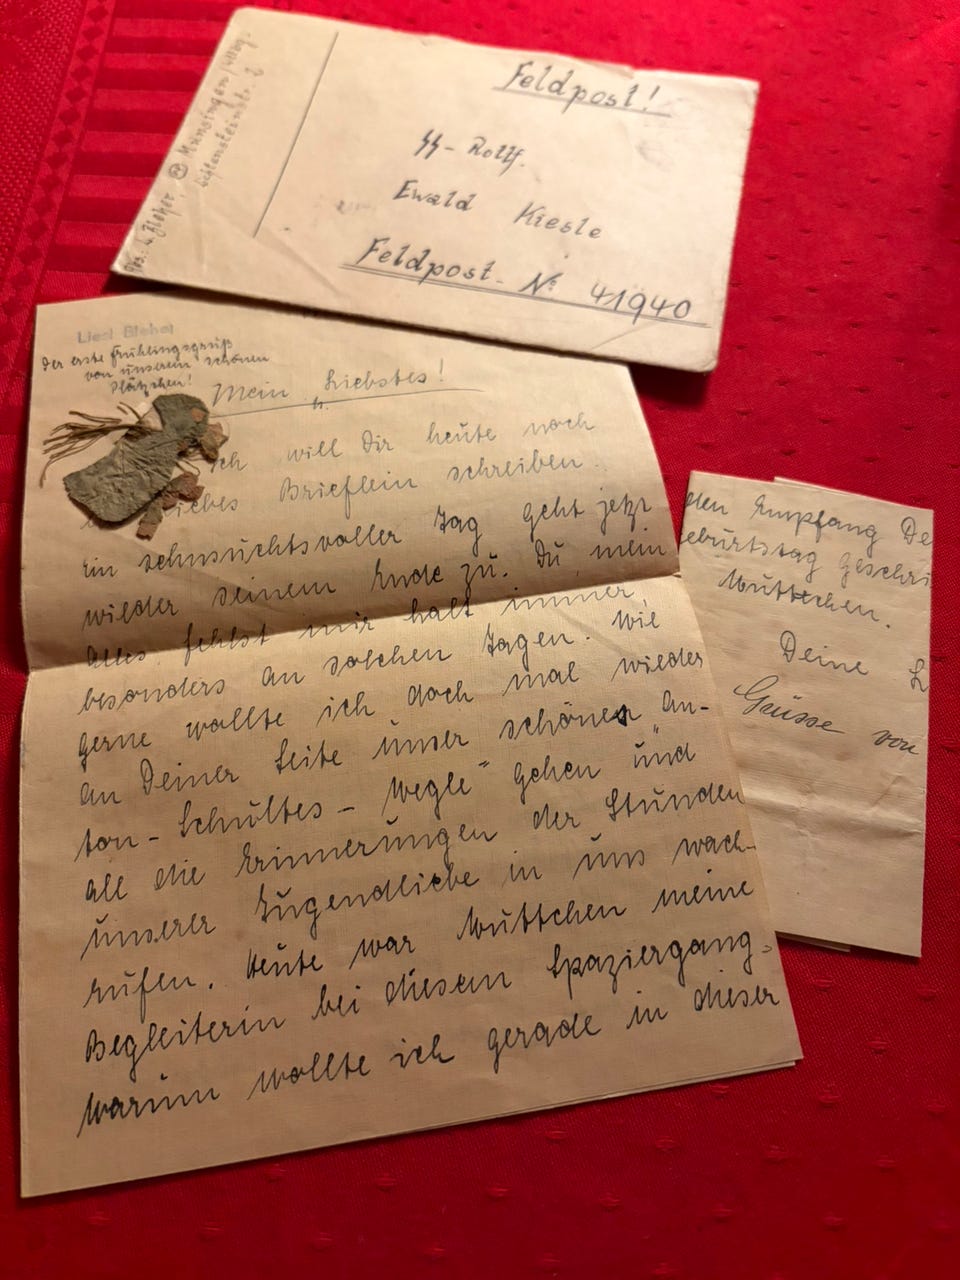 Feldpost!
SS-Rottf.
Ewald Kiesle
Feldpost-No 41940
Münsingen/Wttbg.
Lichtensteinstr. 2
Der erste Frühlingsgruß
von unserem schönen
Plätzchen!
Mein Liebstes!
Ich will Dir heute noch
liebes Brieflein schreiben.
Ein sehnsuchtsvoller Tag geht jetzt
wieder seinem Ende zu. Du, mein
Alles, fehlst mir halt immer,
besonders an solchen Tagen. Wie
gerne wollte ich doch mal wieder
an Deiner Seite unser schönes „An-
ton-Schultes-Wegle" gehen und
all die Erinnerungen der Stunden
unserer Jugendliebe in uns wach-
rufen. Heute war Muttchen meine
Begleiterin bei diesem Spaziergang,
warum wollte ich gerade in dieser
den Empfang De
eburtstag geschri
Muttchen.
Deine L
Grüsse von